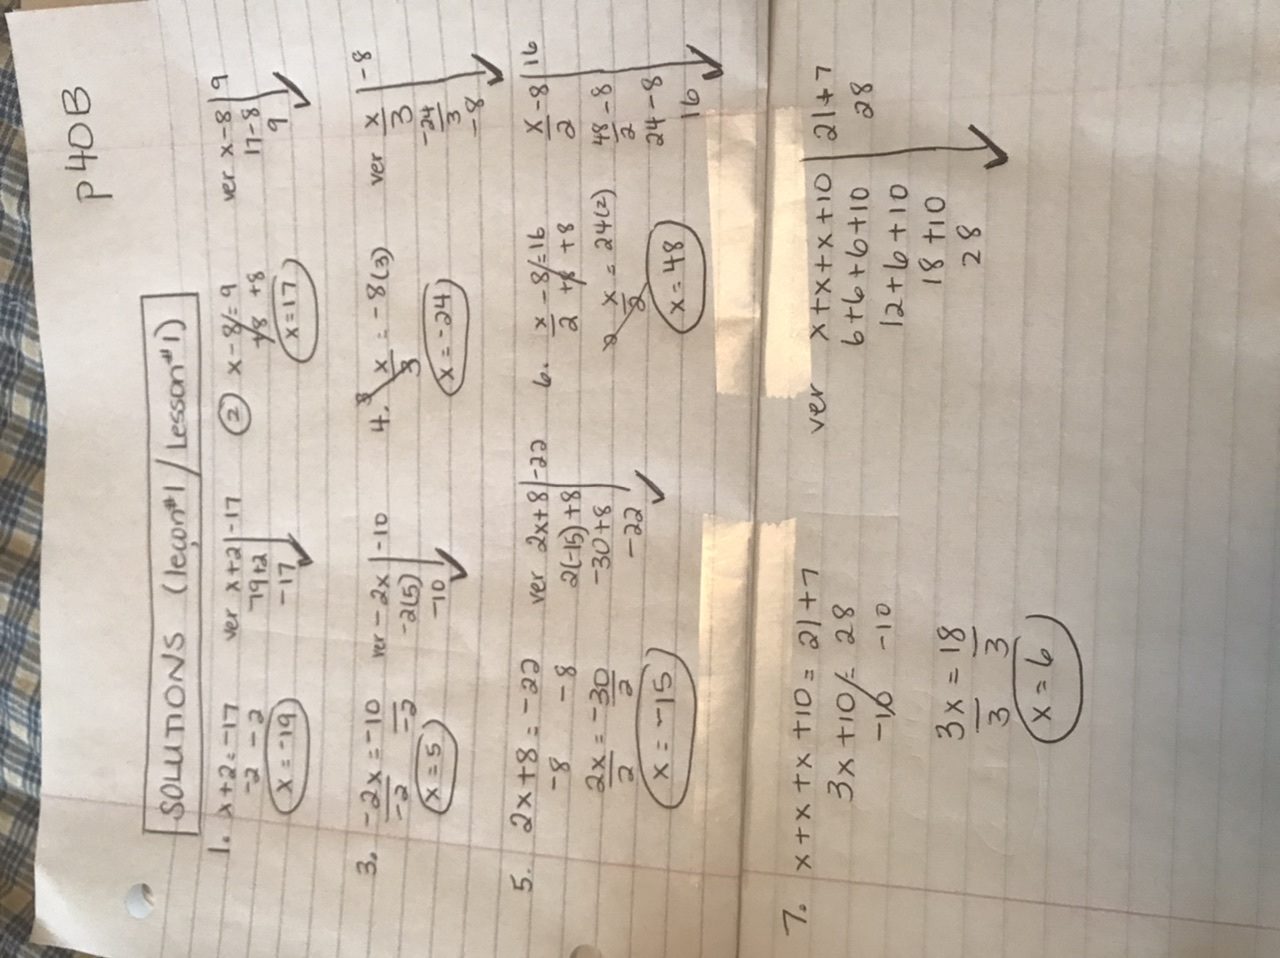 P40B
SOLUTIONS (leçon#1/Lesson#1)
1. x+2=-17
-2 -2
x=-19
ver x+2 | -17
-19+2
-17
② x-8=9
+8 +8
x=17
ver x-8 | 9
17-8
9
3. -2x=-10
-2 -2
x=5
ver -2x | -10
-2(5)
-10
4. 3 x/3 = -8(3)
x=-24
ver x/3 | -8
-24/3
-8
5. 2x+8=-22
-8 -8
2x=-30
2 2
x=-15
ver 2x+8 | -22
2(-15)+8
-30+8
-22
6. x/2 -8=16
+8 +8
2 x/2 = 24(2)
x=48
x/2 -8 | 16
48/2 -8
24-8
16
7. x+x+x+10=21+7
3x+10=28
-10 -10
3x=18
3 3
x=6
ver x+x+x+10 | 21+7
6+6+6+10 28
12+6+10
18+10
28